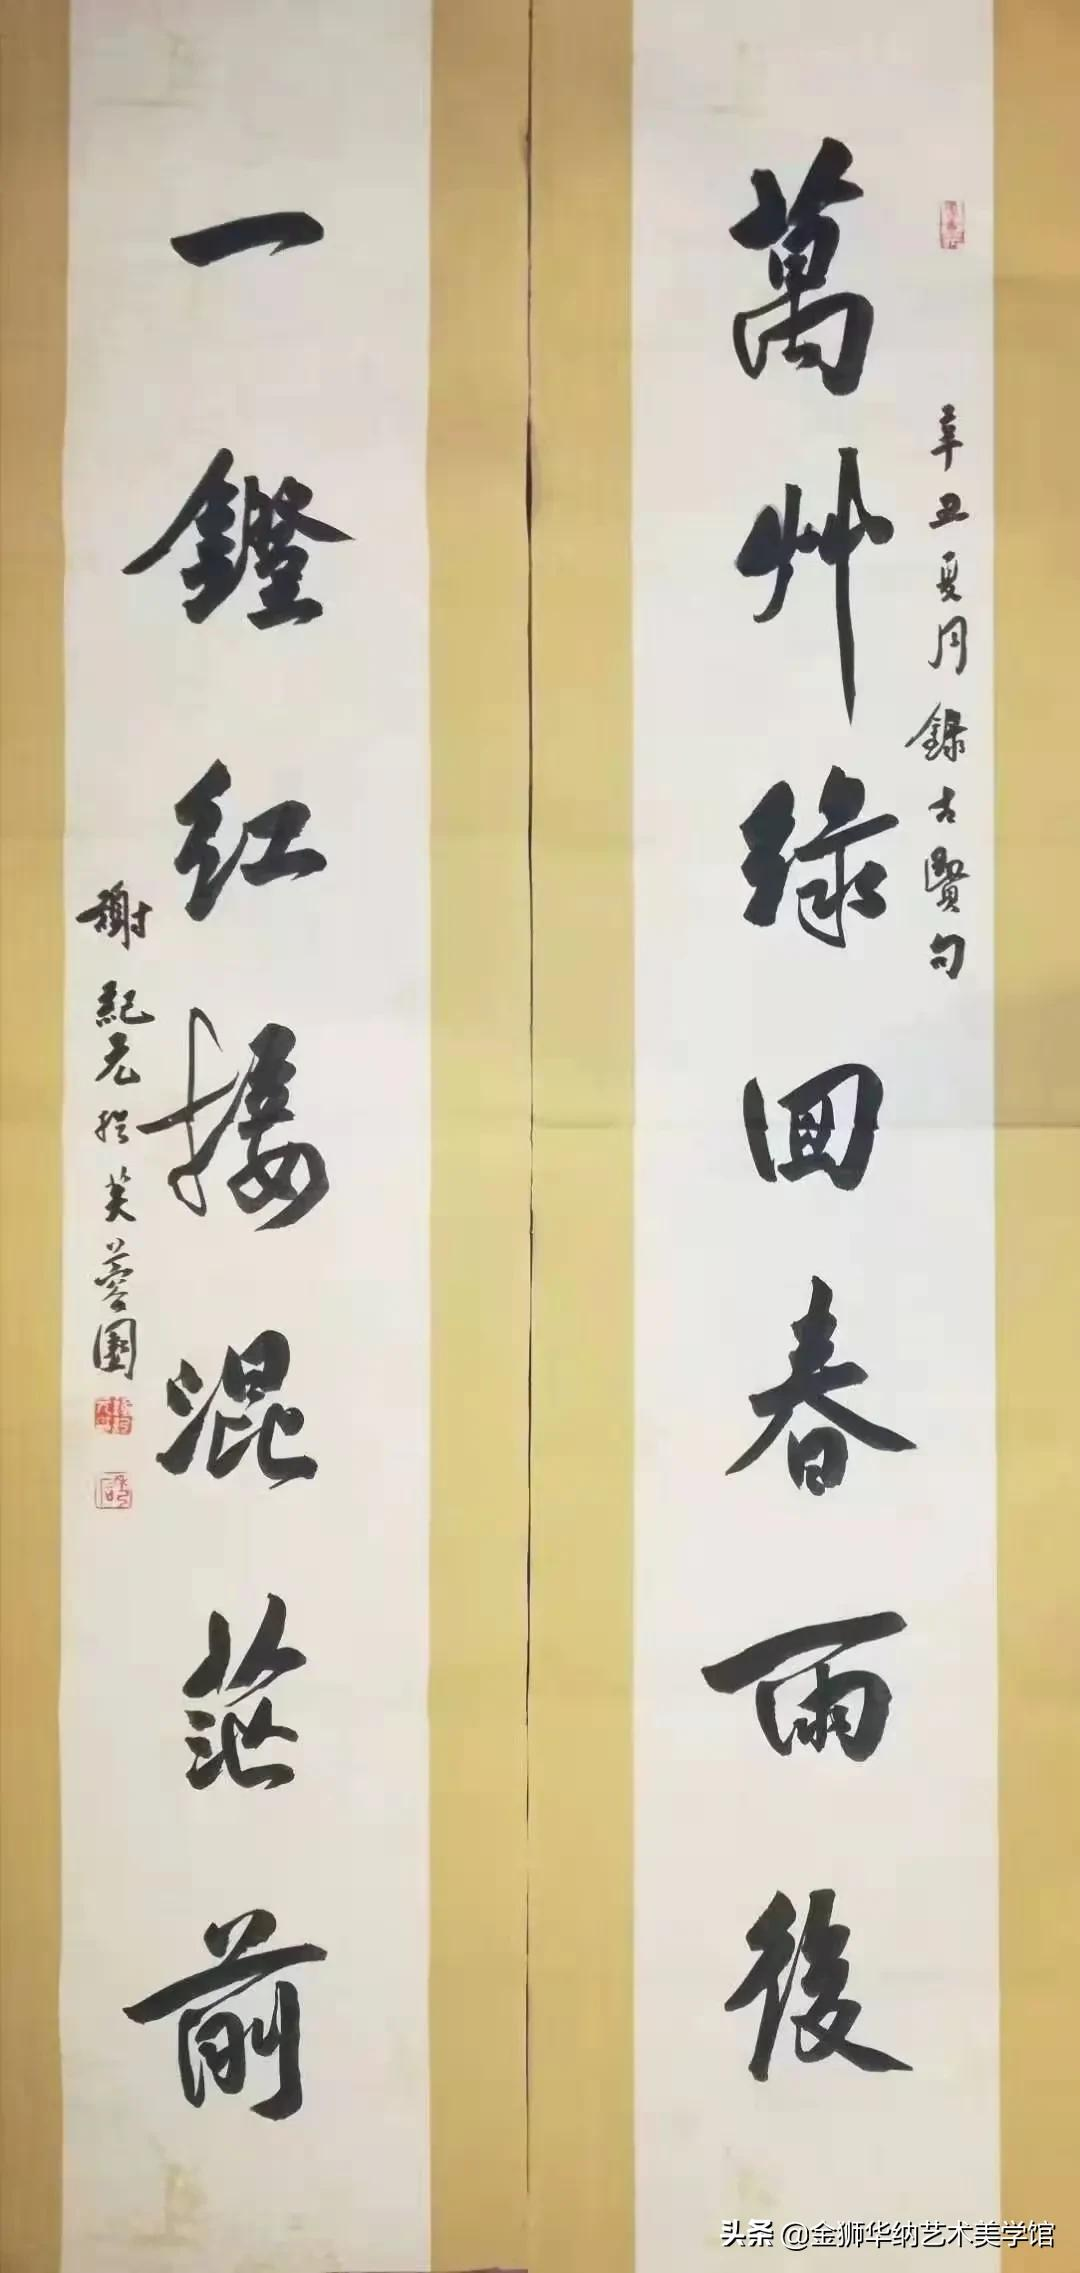 萬艸綠回春雨後
辛丑夏月錄古賢句
一鐙紅接混茫前
謝紀元於芙蓉園
头条 @金狮华纳艺术美学馆